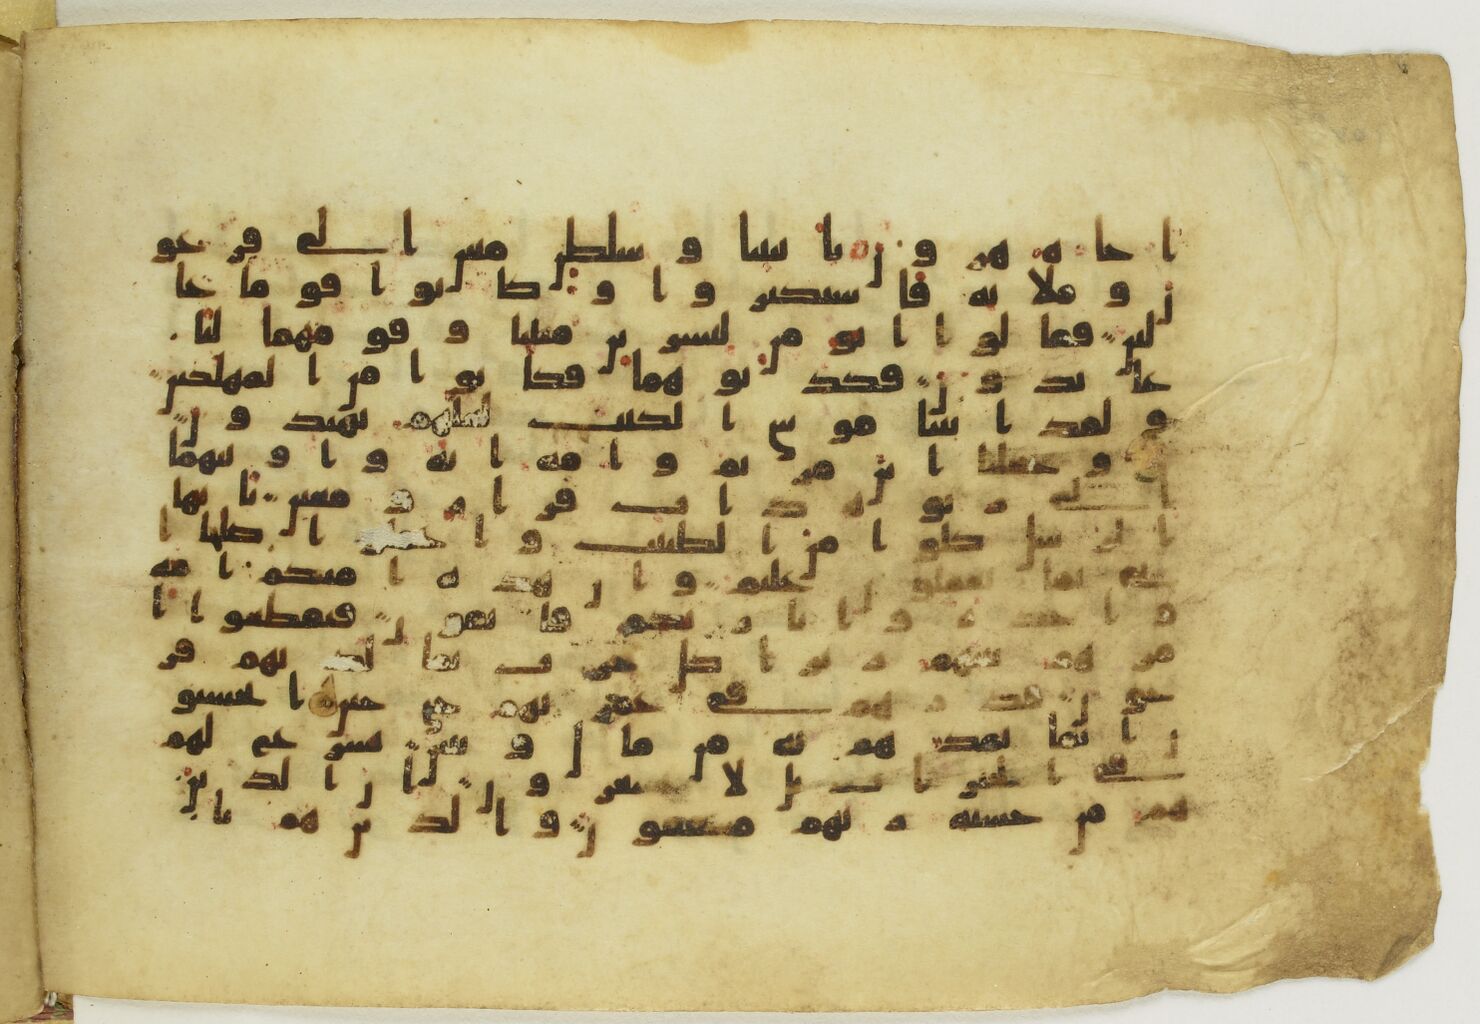 اخاه هرون بايتنا وسلطن مبين الى فرعو
ن وملايه فاستكبروا وكانوا قوما عا
لين فقالوا انومن لبشرين مثلنا وقومهما لنا
عبدون فكذبوهما فكانوا من المهلكين
ولقد اتينا موسى الكتب لعلهم يهتدو
ن وجعلنا ابن مريم وامه اية واوينهما
الى ربوة ذات قرار ومعين يايها
الرسل كلوا من الطيبت واعملوا صلحا ا
نى بما تعملون عليم وان هذه امتكم امة
واحدة وانا ربكم فاتقون فتقطعوا ا
مرهم بينهم زبرا كل حزب بما لديهم فر
حون فذرهم فى غمرتهم حتى حين ايحسبو
ن انما نمدهم به من مال وبنين نسرع لهم
فى الخيرات بل لا يشعرون ان الذين
هم من خشية ربهم مشفقون والذين هم باي